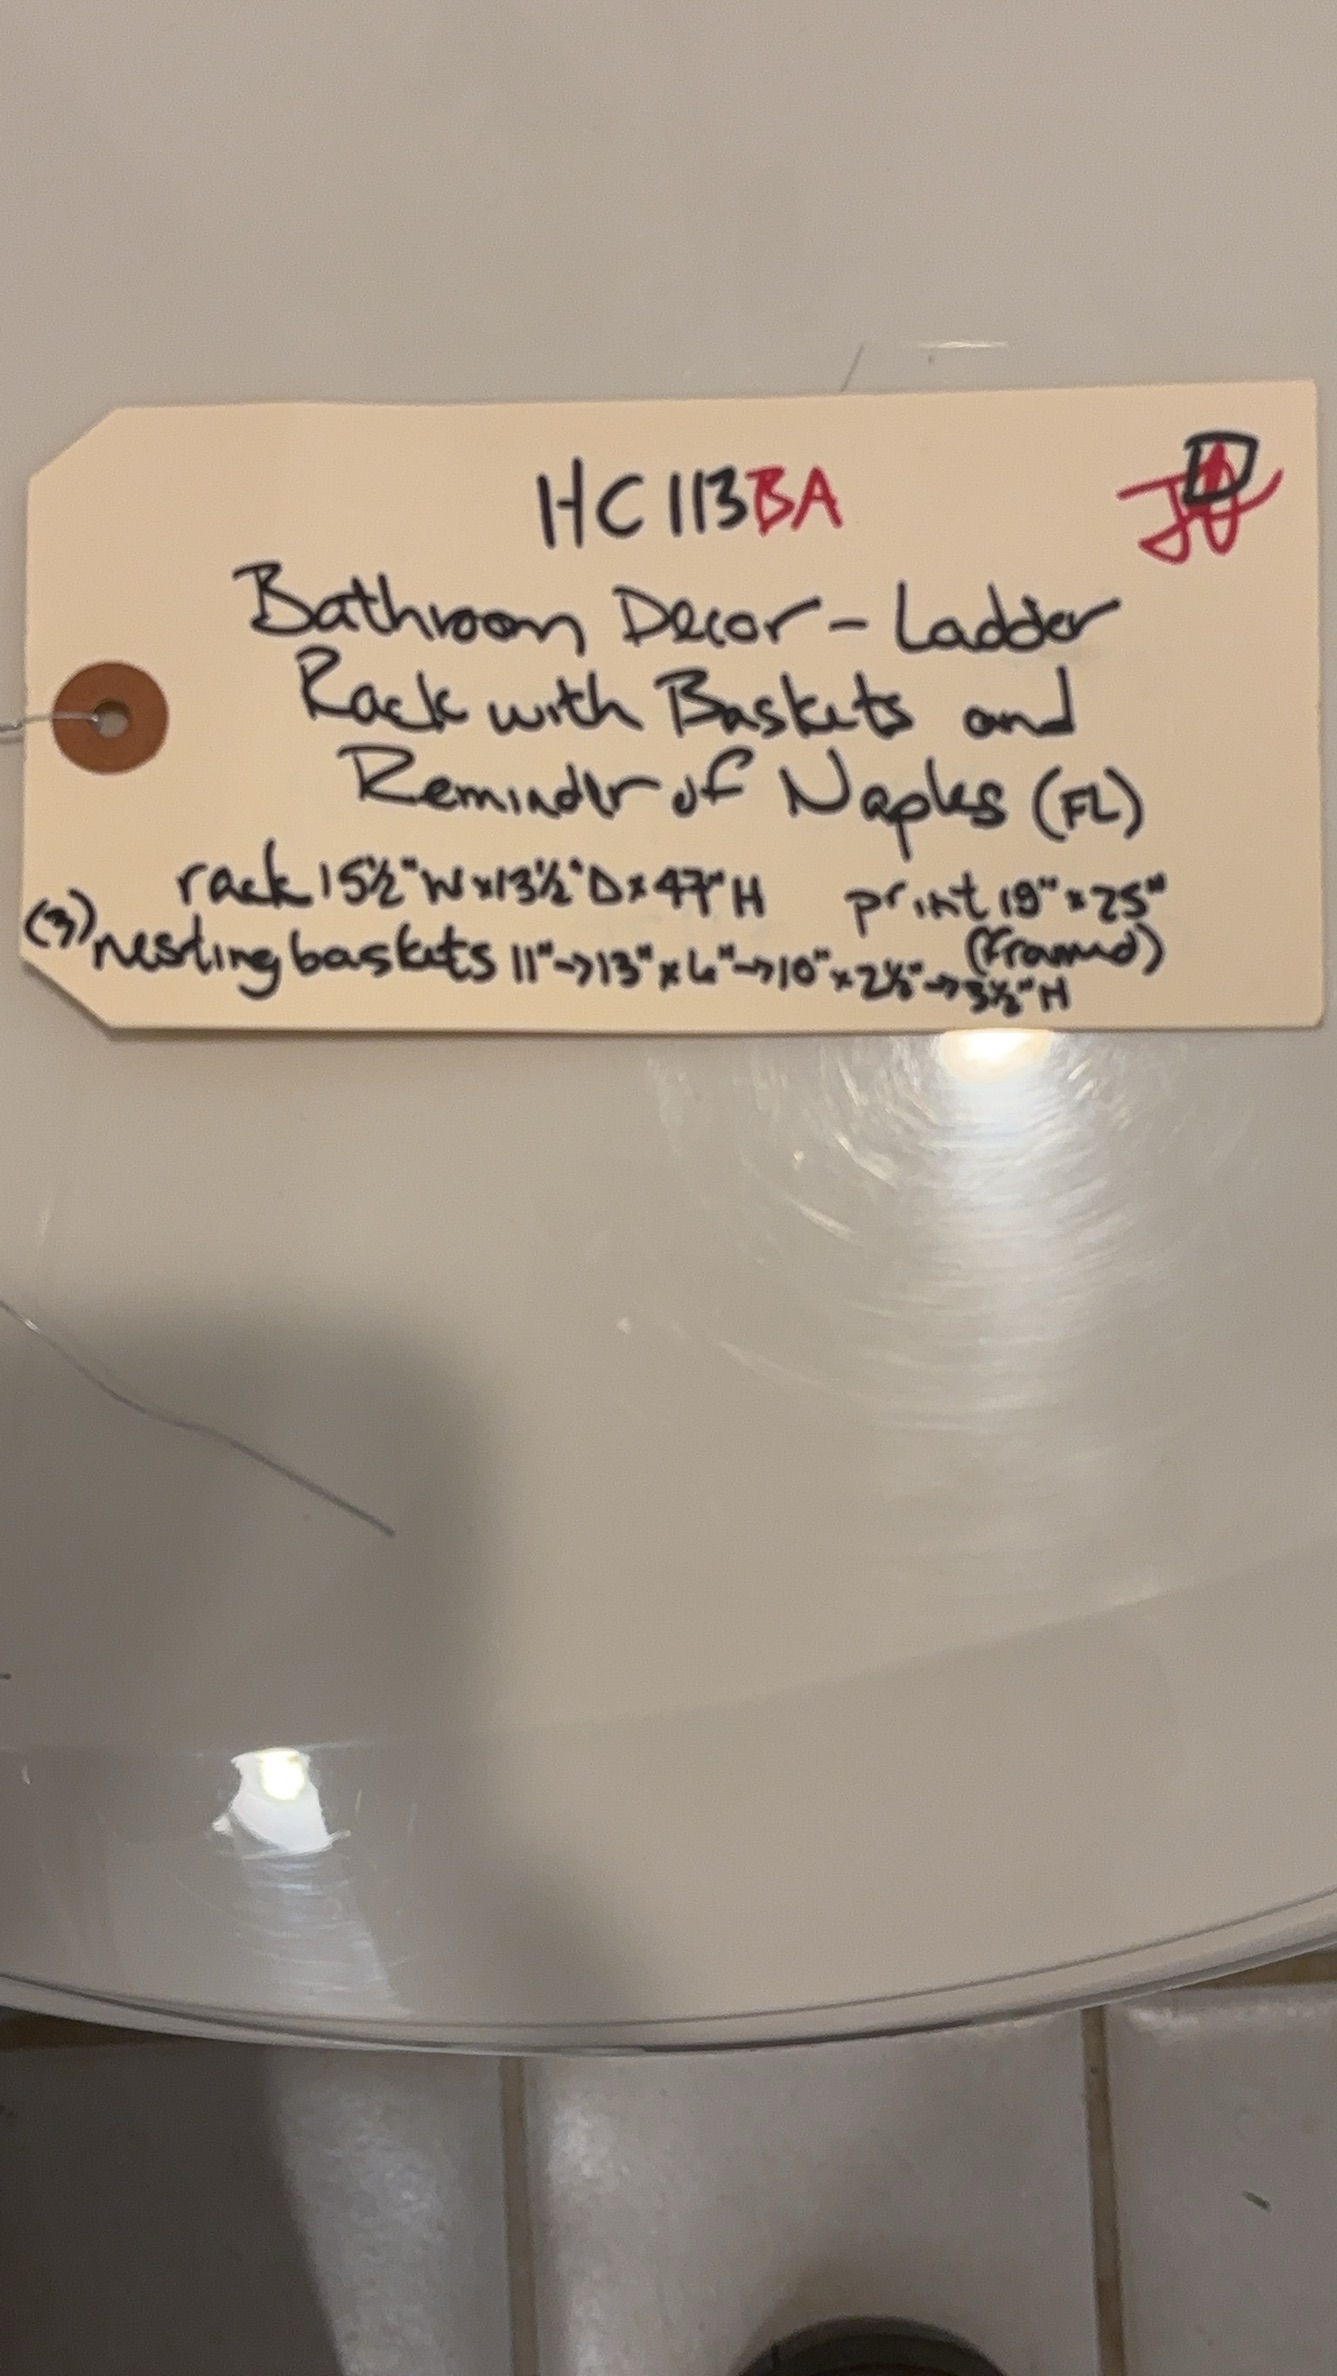 HC113BA
Bathroom Decor - Ladder
Rack with Baskets and
Reminder of Naples (FL)
rack 15½"W x 13½"D x 47"H print 19" x 25"
(framed)
(3) nesting baskets 11"→13" x 6"→10" x 2½"→3½"H